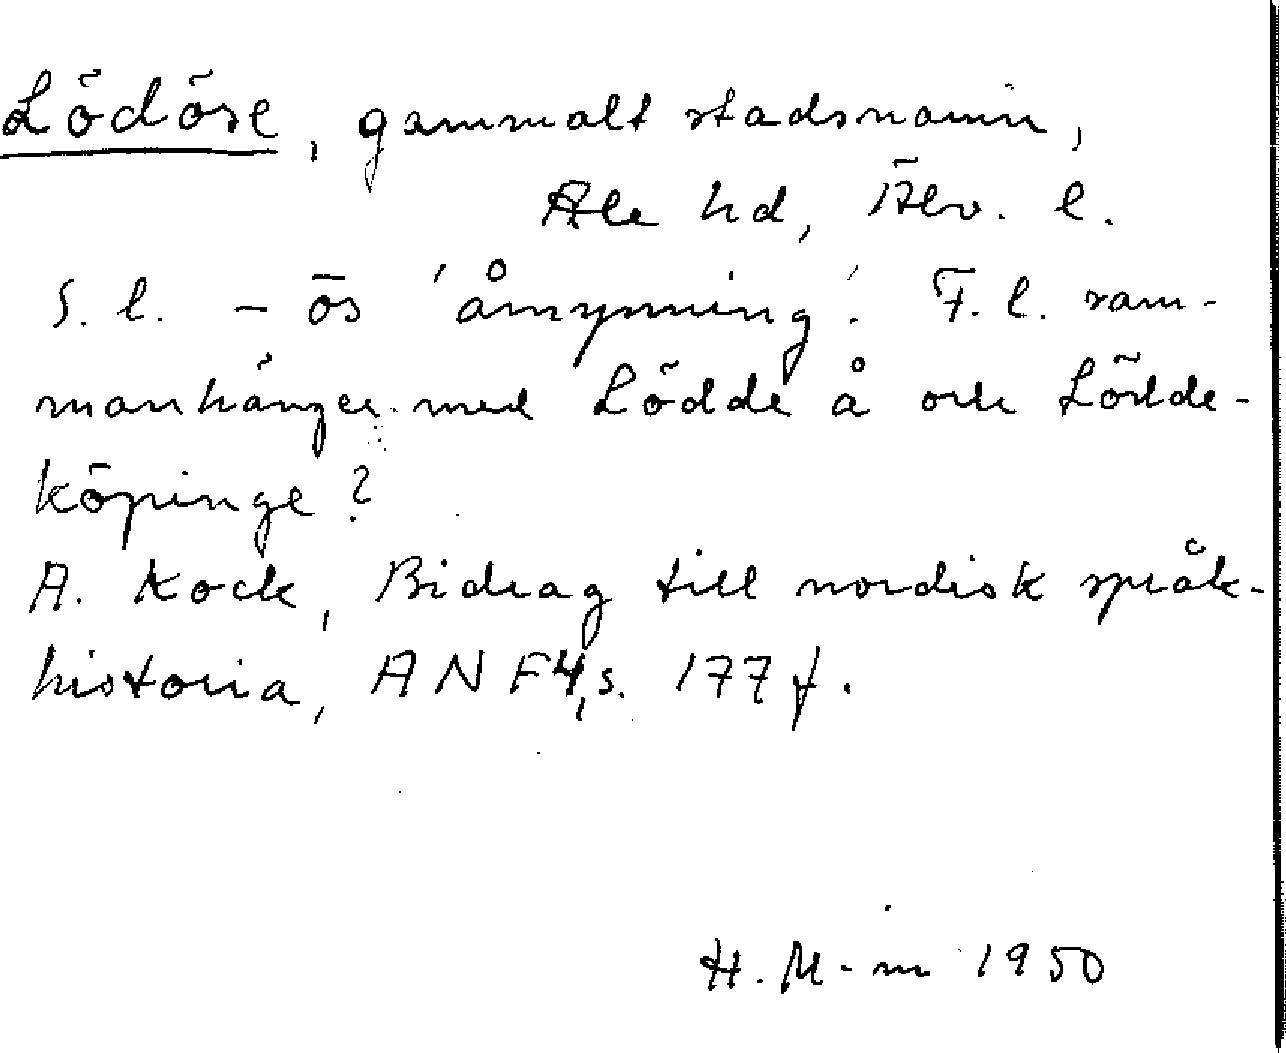 Lödöse, gammalt stadsnamn,
Ale hd, Älv. l.
S. l. - ös 'åmynning'. F. l. sam-
manhänger med Lödde å och Lödde-
köpinge?
A. Kock, Bidrag till nordisk språk-
historia, ANF4, s. 177 f.
H. M-m 1950